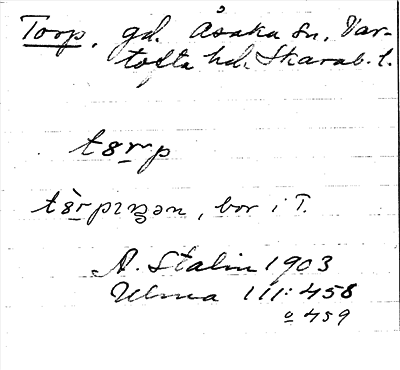 Torp, gd. Åsaka sn, Var-
tofta hd. Skarab. l.
t8rp
t8̀rpıŋən, bor i T.
A. Stalin 1903
Ulma 111:458
o 459